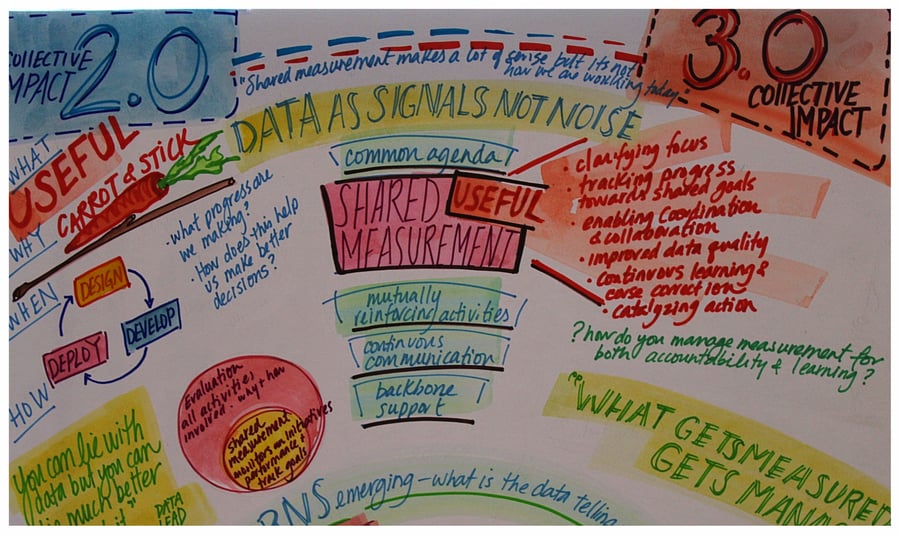 COLLECTIVE
IMPACT
2.0
"Shared measurement makes a lot of sense but its not
how we are working today.
3.0
COLLECTIVE
IMPACT
DATA AS SIGNALS NOT NOISE
WHAT
USEFUL
CARROT & STICK
WHY
• what progress are
we making?
• How does this help
us make better
decisions?
WHEN
DESIGN
DEVELOP
DEPLOY
HOW
common agenda
SHARED
MEASUREMENT
USEFUL
mutually
reinforcing activities
continuous
communication
backbone
support
• clarifying focus
• tracking progress
towards shared goals
• enabling coordination
& collaboration
• improved data quality
• continuous learning &
corse correction
• catalyzing action
? how do you manage measurement for
both accountability & learning?
Evaluation
all activities
involved. why + how
Shared
measurement
monitors an initiatives
performance +
track goals
You can lie with
data but you can
lie much better
DATA
"WHAT GETS MEASURED
GETS
emerging - what is the data telling